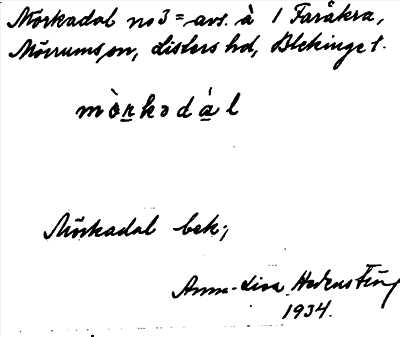 Mörkadal no 3 = avs. à 1 Faråkra,
Mörrums sn, Listers hd, Blekinge l.
mò̱rkadá̱l
Mörkadal bek;
Anna-Lisa
1934.